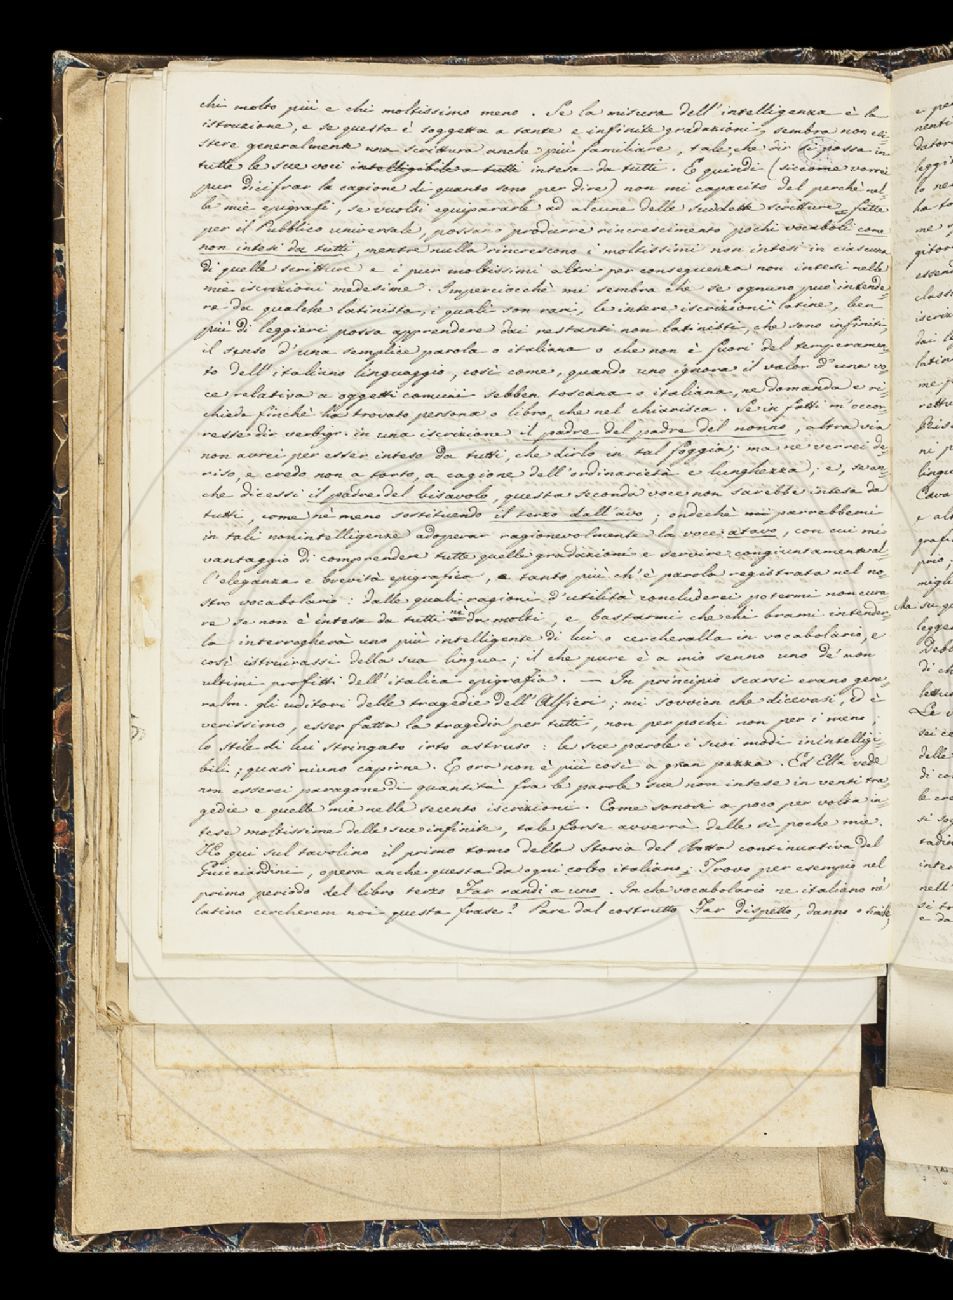 chi molto più e chi moltissimo meno. Se la misura dell'intelligenza è la
istruzione, e se questa è soggetta a tante e infinite gradazioni, sembra non esi-
stere generalmente una scrittura anche più familiare, tale, che dir si possa in
tutte le sue voci intelligibile a tutti intesa da tutti. E quindi (siccome vorrei
pur dicifrar la cagione di quanto sono per dire) non mi capacito del perchè nel-
le mie epigrafi, se vuolsi equipararle ad alcune delle suddette scritture fatte
per il Pubblico universale, possano produrre rincrescimento pochi vocaboli come
non intesi da tutti, mentre nulla rincrescono i moltissimi non intesi in ciascuna
di quelle scritture e i pur moltissimi altri per conseguenza non intesi nelle
mie iscrizioni medesime. Imperciocchè mi sembra che se ognuno può intende-
re da qualche latinista, i quali son rari, le intere iscrizioni latine, ben
più di leggieri possa apprendere dai restanti non latinisti, che sono infiniti,
il senso d'una semplice parola o italiana o che non è fuori del temperamen-
to dell'italiano linguaggio, così come, quando uno ignora il valor d'una vo-
ce relativa a oggetti comuni sebben toscana o italiana, ne domanda e ri-
chiede finchè ha trovato persona o libro, che nel chiarisca. Se in fatti m'occor-
resse dir verbigr. in una iscrizione il padre del padre del nonno, altra via
non avrei per esser inteso da tutti, che dirlo in tal foggia; ma ne verrei de-
riso, e credo non a torto, a cagione dell'ordinarietà e lunghezza; e, se an-
che dicessi il padre del bisavolo, questa seconda voce non sarebbe intesa da
tutti, come nè meno sostituendo il terzo dall'avo; ondechè mi parrebbemi
in tali nonintelligenze adoperar ragionevolmente la voce atavo, con cui mi
vantaggio di comprender tutte quelle gradazioni e servire congiuntamente al-
l'eleganza e brevità epigrafica, e tanto più ch'è parola registrata nel no-
stro vocabolario: dalle quali ragioni d'utilità concluderei potermi non cura-
re se non è intesa da tutti nè da molti, e bastarmi che chi brami intender-
la interrogherà uno più intelligente di lui o cercheralla in vocabolario, e
così istruirassi della sua lingua; il che pure è a mio senno uno de' non
ultimi profitti dell'italica epigrafia. — In principio scarsi erano gene-
ralm. gli uditori delle tragedie dell'Alfieri; mi sovvien che dicevasi, ed è
verissimo, esser fatta la tragedia per tutti, non per pochi non per i meno;
lo stile di lui stringato irto astruso: le sue parole i suoi modi inintelligi-
bili; quasi niuno capirne. E ora non è più così a gran pezza. Ed Ella vede
non esserci paragone di quantità fra le parole sue non intese in venti tra-
gedie e quelle mie nelle secento iscrizioni. Come sonosi a poco per volta in-
tese moltissime delle sue infinite, tale forse avverrà delle sì poche mie.
Ho qui sul tavolino il primo tomo della Storia del Botta continuativa del
Guicciardini, opera anche questa da ogni colto italiano; Trovo per esempio nel
primo periodo del libro terzo Far randi a uno. In che vocabolario ne italiano nè
latino cercherem noi questa frase? Pare dal costrutto Far dispetto, danno o simile;